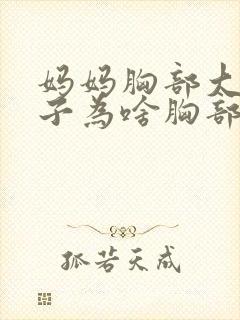 妈妈胸部太
子为啥胸部
孤若天成